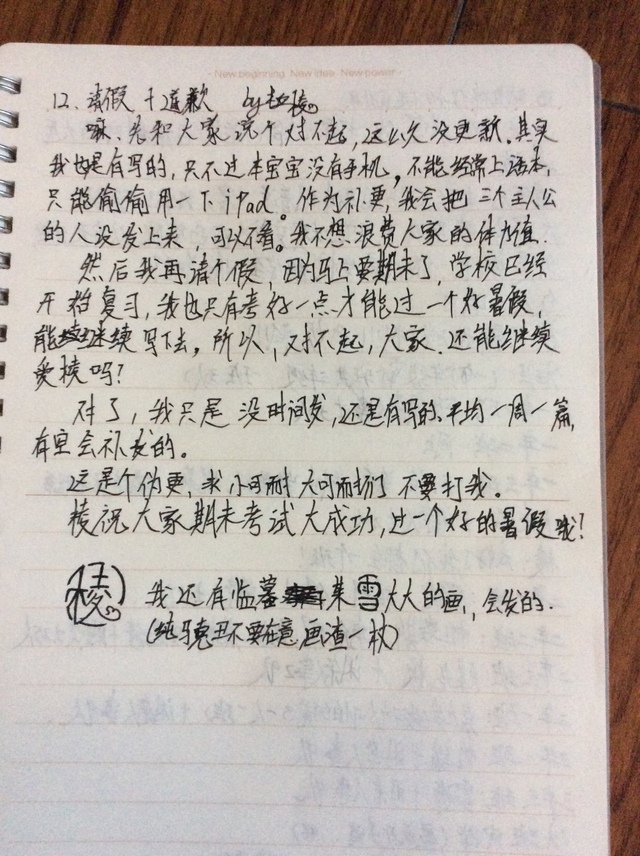 New beginning New idea New power
12. 请假十道歉 by 赵棱
嘛，先和大家说个对不起，这么久没更新。其实
我也是有写的，只不过本宝宝没有手机，不能经常上话本，
只能偷偷用一下iPad。作为补更，我会把三个主人公
的人设发上来，可以不看。我不想浪费大家的体力值.
然后我再请个假，因为马上要期末了，学校已经
开始复习，我也只有考好一点才能过一个好暑假，
能继续写下去。所以，对不起，大家.还能继续
爱棱吗？
对了，我只是没时间发，还是有写的.平均一周一篇，
有空会补发的。
这是个伪更，求小可耐大可耐们不要打我。
棱祝大家期末考试大成功，过一个好的暑假哦！
棱
我还有临摹茱雪大大的画，会发的.
(纯马克丑不要在意 画渣一枚)